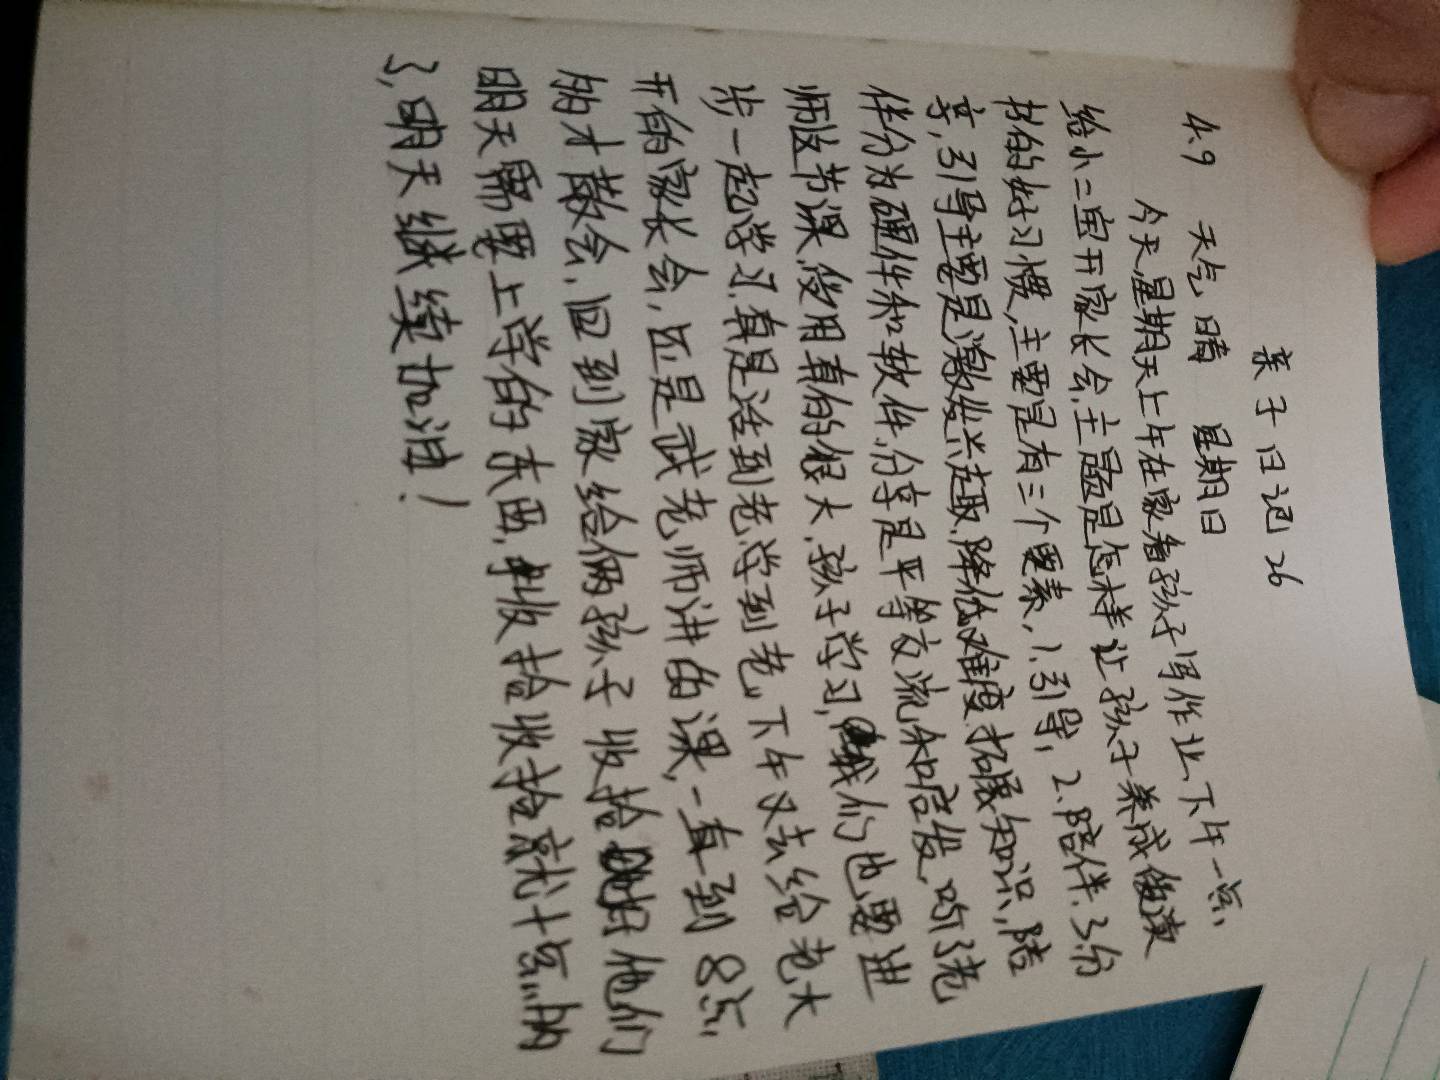 亲子日记26
4.9 天气晴 星期日
今天星期天上午在家看孩子写作业,下午一点
给小二宝开家长会,主题是怎样让孩子养成读
书的好习惯,主要是有三个要素,1.引导,2.陪伴.3.分
享,引导主要是激发兴趣,降低难度拓展知识,陪
伴分为硬件和软件,分享是平等交流和启发,听了老
师这节课,受用真的很大,孩子学习,我们也要进
步一起学习,真是活到老,学到老,下午又去给老大
开的家长会,还是试老师讲的课,一直到8点
多才散会,回到家给俩孩子收拾好他们
明天需要上学的东西,收拾收拾就十点
了,明天继续加油!